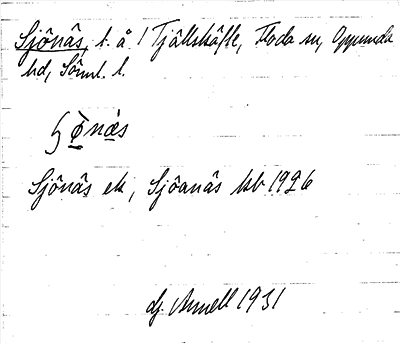 Sjönäs, t. å 1 Tjällskäfte, Floda sn, Oppunda
hd, Söml. l.
Sjönäs ek, Sjöanäs kb 1926
dj. Arnell 1931